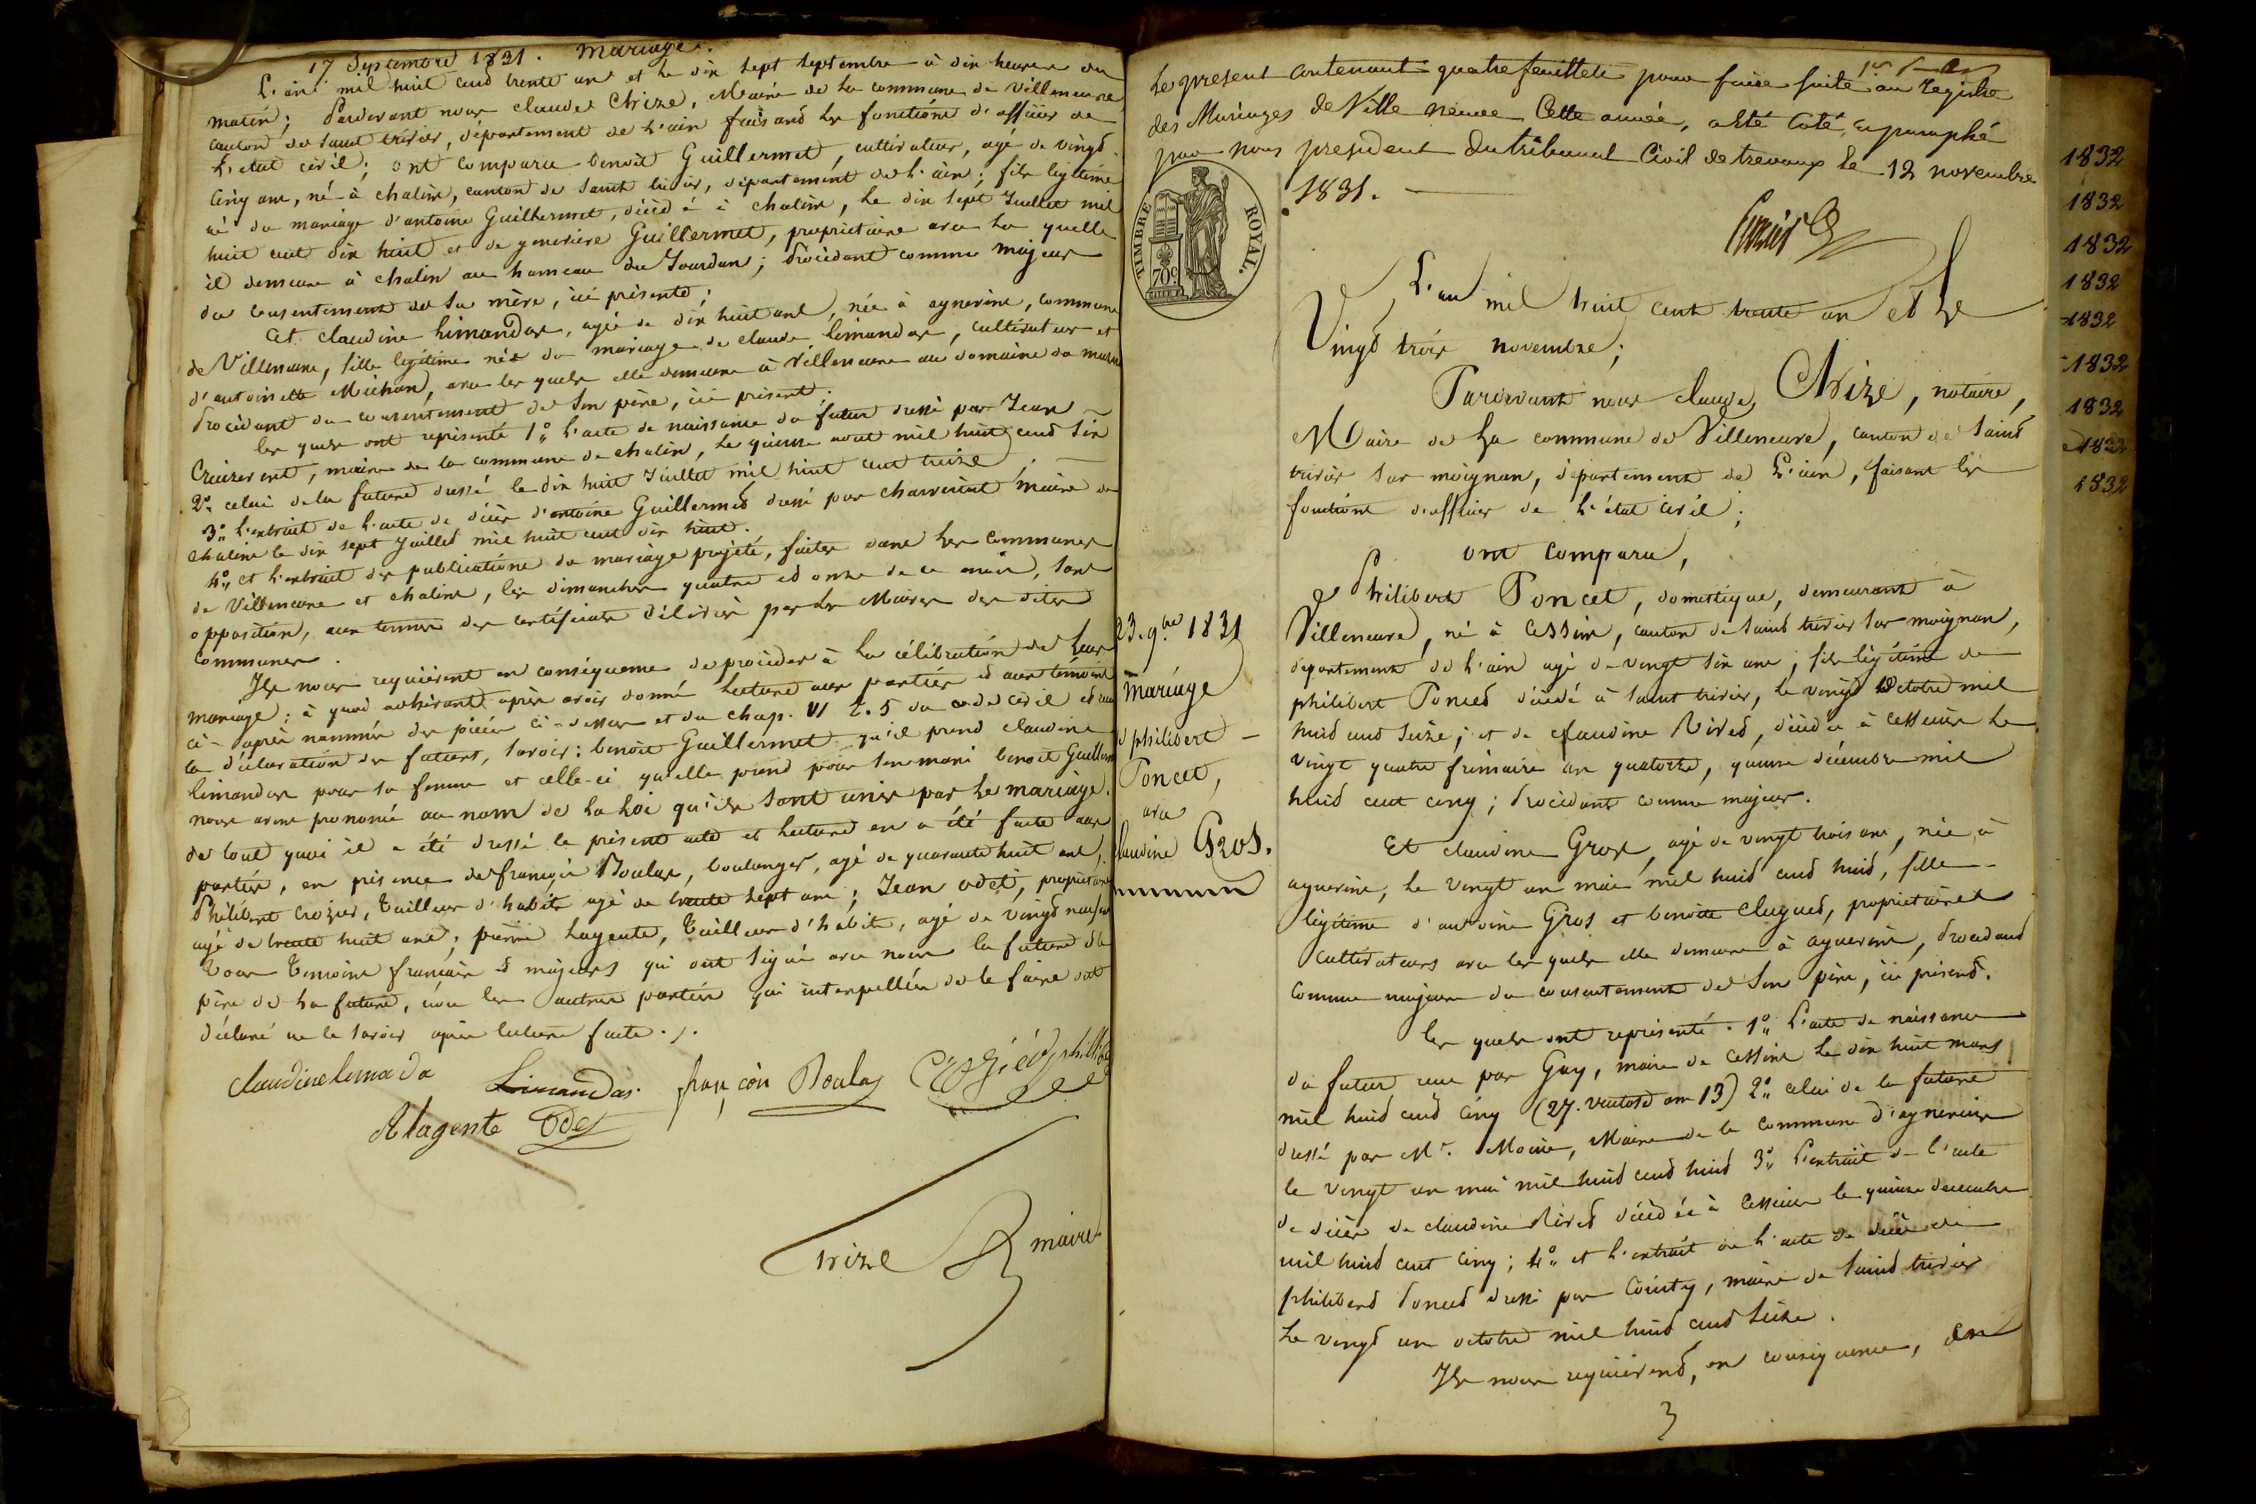 17 Septembre 1831. Mariage.
L'an mil huit cend trente un et le dix sept septembre à dix heures du
matin; Pardevant nous claude Chize, Maire de la commune de Villeneuve
canton de saint trivier, département de l'ain faisand les fonctions d'officier de
l'etat civil; ont comparu benoit Guillermet, cultivateur, agé de vingd
cinq ans, né à chalins, canton de saint trivier, département de l'ain; fils légitime
né du mariage d'antoine Guillermet, décédé à chalins, le dix sept Juillet mil
huit cent dix huit et de genevieve Guillermet, propriétaire avec la quelle
il demeure à chalin au hameau du Jourdan; Procédant comme majeur
du consentement de sa mère, ici présente;
Et claudine Limandas, agée de dix huit ans, née à aynerins, commune
de Villeneuve, fille légitime née du mariage de claude Limandas, cultivateur et
d'antoinette Michon, avec les quels elle demeure à Villeneuve au domaine du
Procédant du consentement de son pere, ici présent;
les quels ont représenté 1° l'acte de naissance du futur dressé par Jean
Creuzevent, maire de la commune de chalin, le quinze aout mil huit cend six
2° celui de la future dressé le dix huit Juillet mil huit cent treize;
3° l'extrait de l'acte de décès d'antoine Guillermed dressé par maire de
chaleins le dix sept Juilled mil huit cent dix huit.
4° et l'extrait des publications du mariage projeté, faites dans les communes
de Villeneuve et chalins, les dimanches quatre et onze de ce mois, sans
opposition, aux termes des certificats délivrés par les Maires des dites
communes.
Ils nous requierent en conséquence de procéder à la célébration de leur
mariage; à quoi adhérant après avoir donné lecture aux parties et aux témoins
ci-après nommés des pièces ci-dessus et du chap. VI t. 5 du code civil et sur
la déclaration des futurs, savoir: benoit Guillermet qu'il prend claudine
limandas pour sa femme et celle-ci qu'elle prend pour son mari benoit Guillerm
nous avons prononcé au nom de la Loi qu'ils sont unis par le mariage.
de tout quoi il a été dressé le présent acte et lecture en a été faite aux
parties, en présence de françois Boulas, boulanger, agé de quarante huit ans,
Philibert Crozier, tailleur d'habits agé de trente sept ans; Jean odet, propriétaire
agé de trente huit ans; pierre Lagente, tailleur d'habits, agé de vingd neuf ans
tous témoins français et majeurs qui ont signé avec nous la future et le
père de la future, non les autres parties qui interpellées de le faire ont
déclaré ne le savoir après lecture faite.
claudine limada Limandas françois Boulas Crozier philib
Alagente Odet
Chize maire
Le present contenant quatre feuillets pour faire suite au registre
des Mariages de Ville neuve Cette année, a été coté et paraphé
par nous president du tribunal Civil de trevoux le 12 novembre
1831.
TIMBRE ROYAL.
70c
L'an mil huit cent trente un et le
Vingd trois novembre;
Pardevant nous claude Chize, notaire,
Maire de la commune de Villeneuve, canton de saind
trivier sur moignan, département de l'ain, faisant les
fonctions d'officier de l'état civil;
ont comparu,
Philibert Poncet, domestique, demeurant à
Villeneuve, né à Cessins, canton de saind trivier sur moignan,
département de l'ain agé de vingt six ans; fils légitime de
philibert Ponced décédé à saint trivier, le vingd octobre mil
huid cend seize; et de claudine Rived, décédée à cesseins le
vingt quatre frimaire an quatorze, quinze décembre mil
huid cent cinq; Procédant comme majeur.
Et claudine Gros, agée de vingt trois ans, née à
aynerins, le vingt un mai mil huid cend huid, fille
légitime d'antoine Gros et benoite Clugned, propriétaires
cultivateurs avec les quels elle demeure à aynerins, Procédand
comme majeure du consentement de son père, ici présend.
les quels ont représenté. 1° l'acte de naissance
du futur reçu par Guy, maire de Cessins le dix huit mars
mil huid cend cinq (27. ventose an 13) 2° celui de la future
dressé par Mr. Moine, Maire de la commune d'aynerins
le vingt un mai mil huid cend huid 3° l'extrait de l'acte
de décès de claudine Rived décédée à Cesseins le quinze décembre
mil huid cent cinq; 4° et l'extrait de l'acte de décès de
philiberd Ponced dressé par Cointy, maire de saind trivier
le vingd un octobre mil huid cend seize.
Ils nous requierend, en conséquence, de
3
23. 9bre 1831
Mariage
d philibert
Poncet,
avec
Claudine Gros.
1832
1832
1832
1832
1832
1832
1832
1832
1832